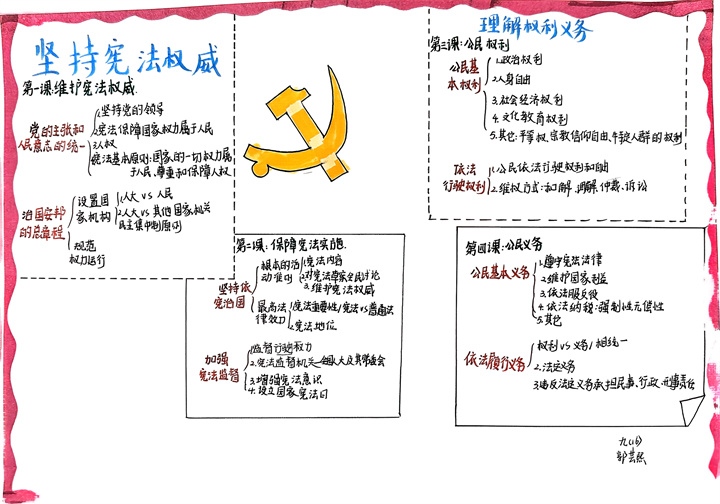 坚持宪法权威
第一课:维护宪法权威.
党的主张和
人民意志的统一
1.坚持党的领导
2.宪法保障国家权力属于人民
3.人权
宪法基本原则:国家的一切权力属
于人民、尊重和保障人权
治国安邦
的总章程
设置国
家机构
1.人大vs人民
2.人大vs其他国家机关
民主集中制原则
规范
权力运行
第二课:保障宪法实施.
坚持依
宪治国
根本的活
动准则
1.宪法内容
3.维护宪法权威
最高法
律效力
1.宪法重要性/宪法vs普通法
2.宪法地位
加强
宪法监督
1.监督行使权力
2.宪法监督机关—全国人大及其常委会
3.增强宪法意识
4.设立国家宪法日
理解权利义务
第三课:公民权利
公民基
本权利
1.政治权利
2.人身自由
3.社会经济权利
4.文化教育权利
5.其它:平等权.宗教信仰自由.特定人群的权利
依法
行驶权利
1.公民依法行驶权利和自由
2.维权方式:和解.调解.仲裁.诉讼
第四课:公民义务
公民基本义务
1.遵守宪法法律
2.维护国家利益
3.依法服兵役
4.依法纳税:强制性无偿性
5.其它
依法履行义务
1.权利vs义务/相统一
2.法定义务
3.违反法定义务承担民事、行政、刑事责任